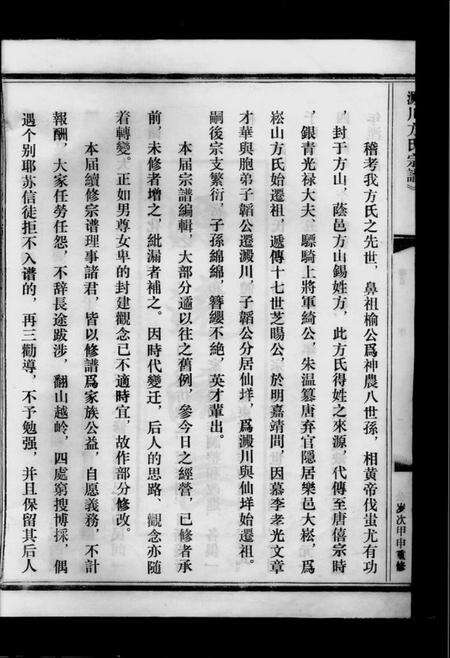 澱川方氏宗譜
稽考我方氏之先世，鼻祖榆公爲神農八世孫，相黃帝伐蚩尤有功
，封于方山，蔭邑方山錫姓方，此方氏得姓之來源，代傳至唐僖宗時
，銀青光禄大夫、驃騎上將軍綺公，朱温篡唐弃官隱居樂邑大崧，爲
崧山方氏始遷祖，遞傳十七世芝暘公，於明嘉靖間，因慕李孝光文章
才華與胞弟子韜公遷澱川，子韜公分居仙垟，爲澱川與仙垟始遷祖。
嗣後宗支繁衍，子孫綿綿，簪纓不絶，英才輩出。
本届宗譜編輯，大部分遁以往之舊例，參今日之經營，已修者承
前，未修者增之，紕漏者補之。因時代變迁，后人的思路、觀念亦随
着轉變。正如男尊女卑的封建觀念已不適時宜，故作部分修改。
本届續修宗譜理事諸君，皆以修譜爲家族公益，自愿義務，不計
報酬，大家任勞任怨，不辞長途跋涉，翻山越岭，四處窮搜博採，偶
遇个别耶苏信徒拒不入谱的，再三勸導，不予勉强，并且保留其后人
岁次甲申重修